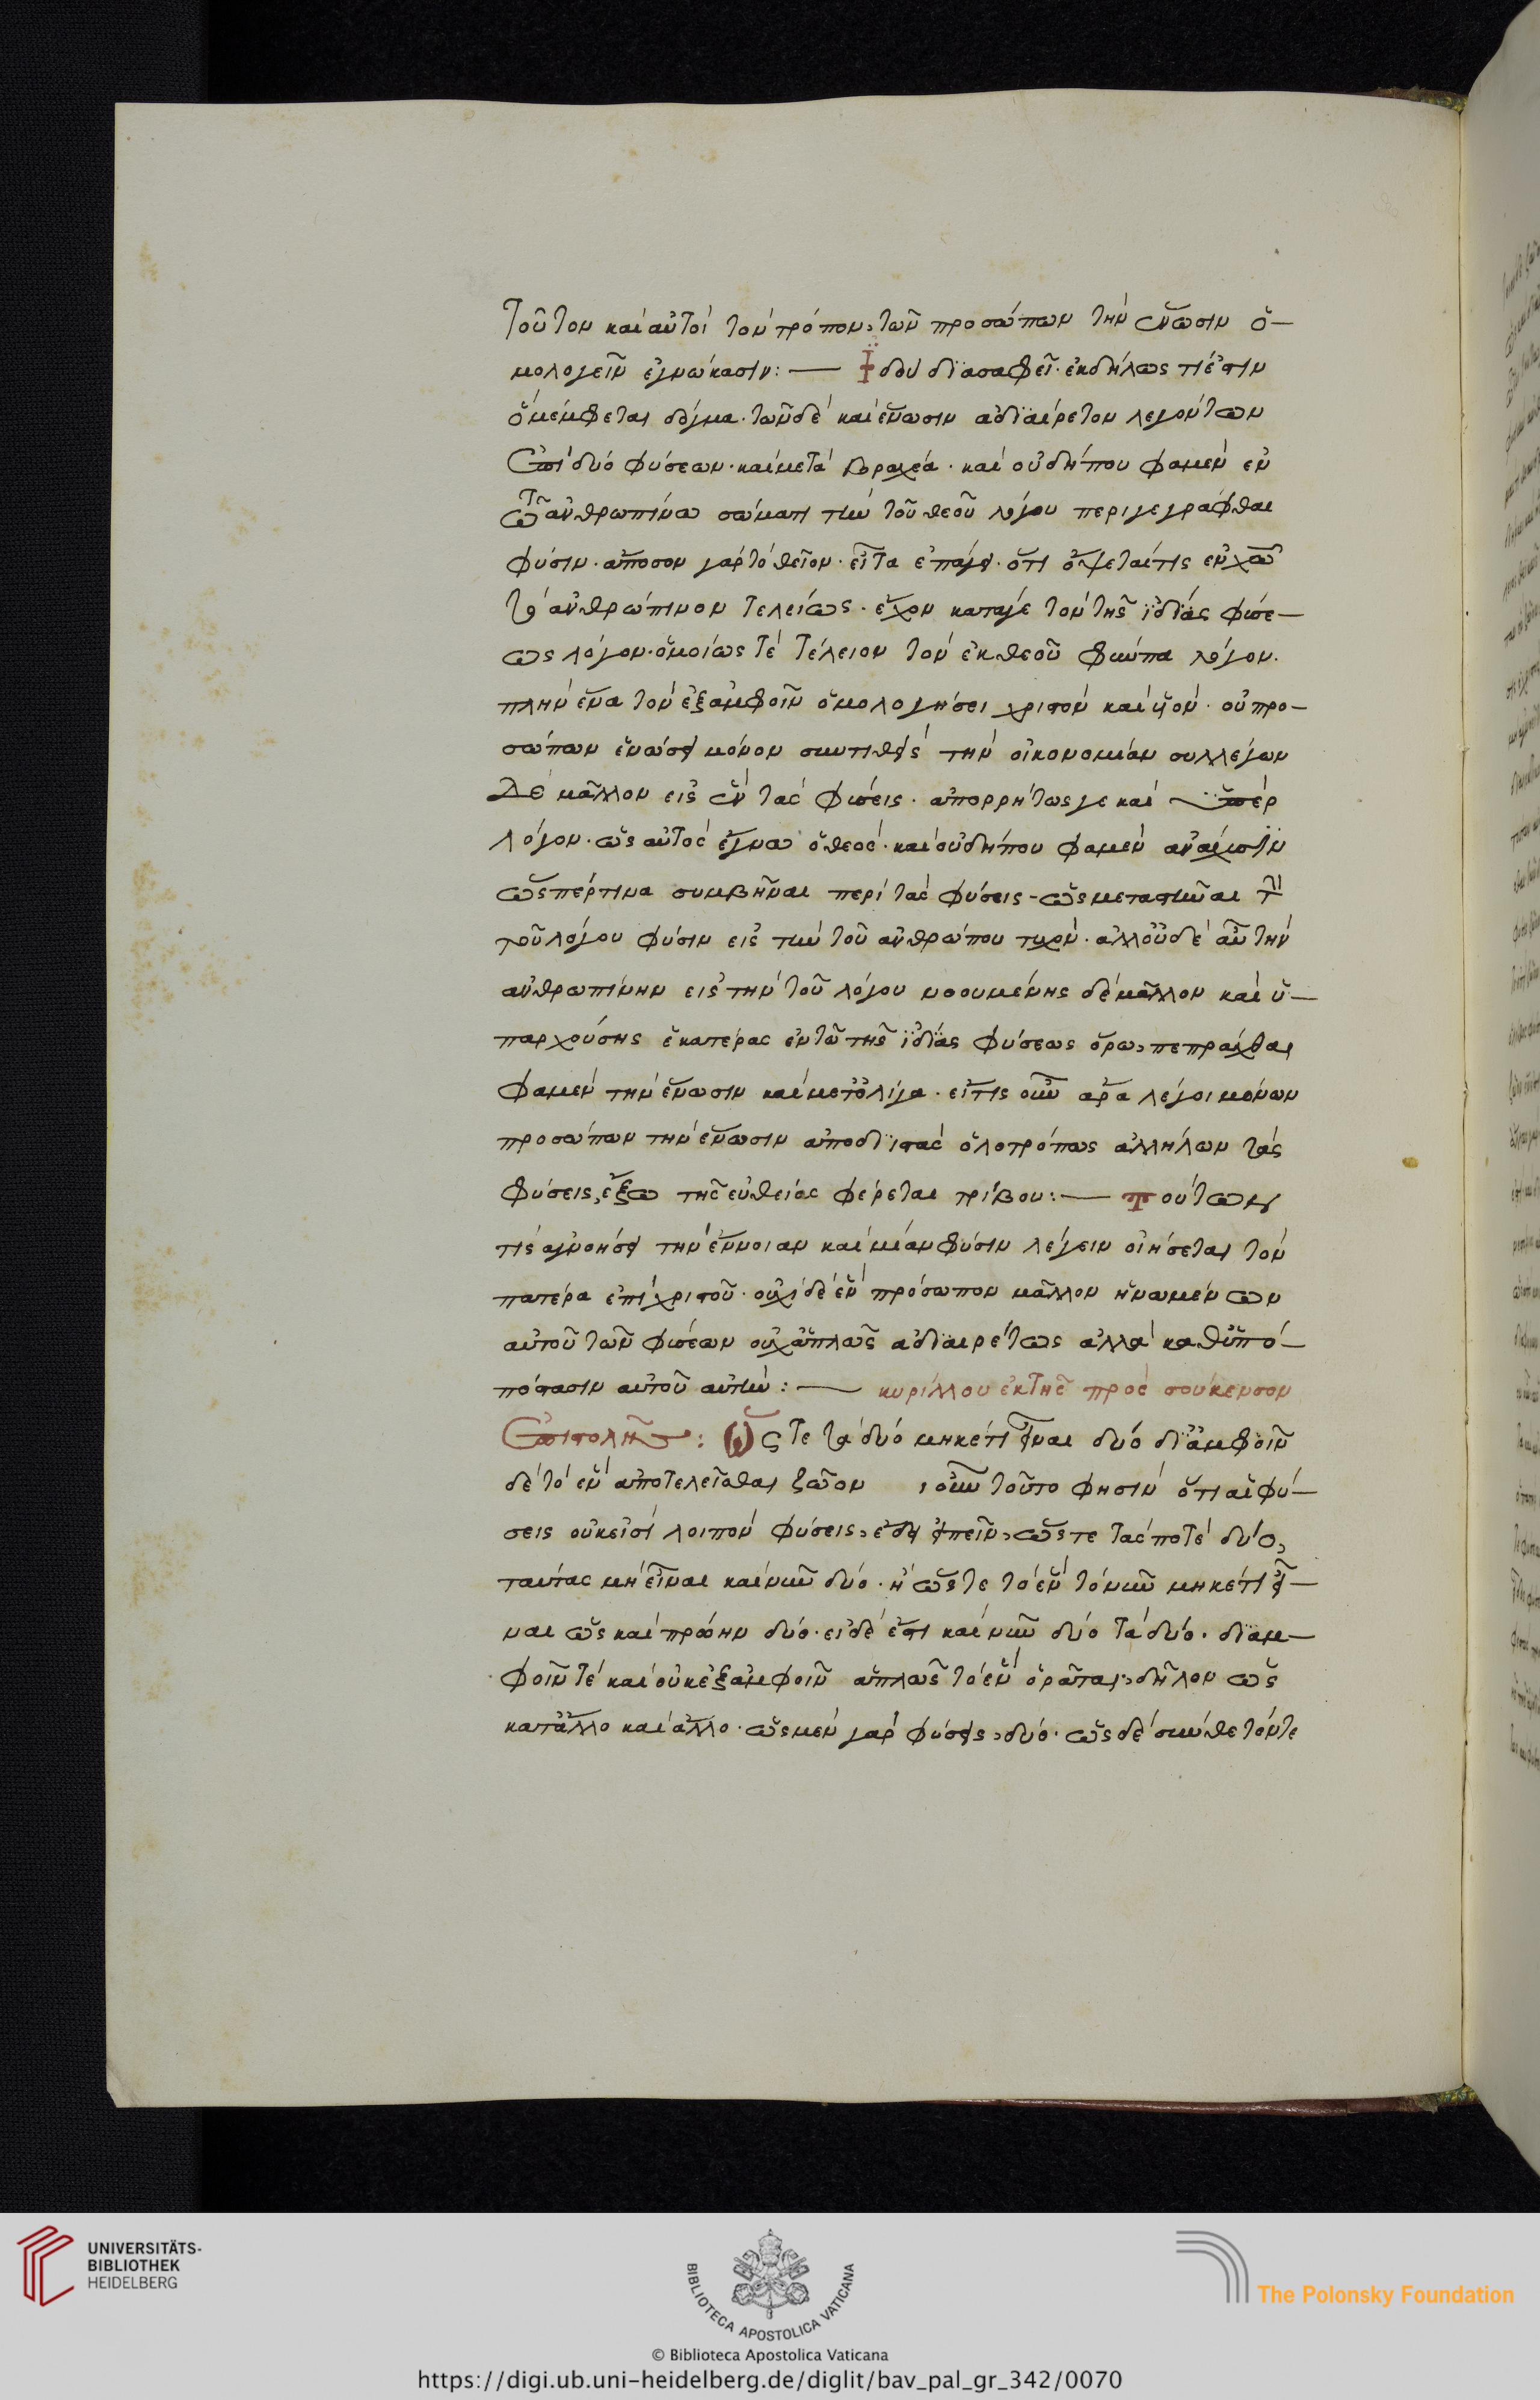 τοῦτον καὶ αὐτοὶ τὸν τρόπον, τῶν προσώπων τὴν ἕνωσιν ὁ–
μολογεῖν ἐγνώκασιν:— Ἰδοὺ διασαφεῖ· ἐκδήλως τί ἐστιν
ὃ μέμφεται δόγμα· τῶν δὲ καὶ ἕνωσιν ἀδιαίρετον λεγόντων
ἐπὶ δύο φύσεων· καὶ μετὰ βραχέα· καὶ οὐδήπου φαμὲν ἐν
τῷ ἀνθρωπίνῳ σώματι τὴν τοῦ θεοῦ λόγου περιγεγράφθαι
φύσιν· ἄποσον γὰρ τὸ θεῖον· εἶτα ἐπάγει· ὅτι ὄψεταί τις ἐν χῶ
τὸ ἀνθρώπινον τελείως· ἔχον κατά γε τὸν τῆς ἰδίας φύσε–
ως λόγον· ὁμοίως τὲ τέλειον τὸν ἐκ θεοῦ φύντα λόγον.
πλὴν ἕνα τὸν ἐξ ἀμφοῖν ὁμολογήσει χριστὸν καὶ υἱὸν· οὐ προ–
σώπων ἑνώσει μόνον συντιθεὶς τὴν οἰκονομίαν συλλέγων
δὲ μᾶλλον εἰς ἓν τὰς φύσεις· ἀπορρήτως γε καὶ ὑπὲρ
λόγον· ὡς αὐτὸς ἔγνω ὁ θεός· καὶ οὐδήπου φαμὲν ἀνάχυσιν
ὥσπέρ τινα συμβῆναι περὶ τὰς φύσεις - ὡς μεταστῆναι τὴν
τοῦ λόγου φύσιν εἰς τὴν τοῦ ἀνθρώπου τυχὸν· ἀλλ' οὐδὲ αὖ τὴν
ἀνθρωπίνην εἰς τὴν τοῦ λόγου νοουμένης δὲ μᾶλλον καὶ ὑ–
παρχούσης ἑκατέρας ἐν τῶ τῆς ἰδίας φύσεως ὅρω, πεπράχθαι
φαμὲν τὴν ἕνωσιν καὶ μετ' ὀλίγα· εἴ τις οὖν ἄρα λέγοι μόνων
προσώπων τὴν ἕνωσιν ἀποδιϊστὰς ὁλοτρόπως ἀλλήλων τὰς
φύσεις, ἔξω τῆς εὐθείας φέρεται τρίβου:— Τούτων
τίς ἀγνοήσει τὴν ἔννοιαν καὶ μίαν φύσιν λέγειν οἰήσεται τὸν
πατέρα ἐπὶ χριστοῦ· οὐχὶ δὲ ἓν πρόσωπον μᾶλλον ἡνωμένων
αὐτοῦ τῶν φύσεων οὐχ ἁπλῶς ἀδιαιρέτως ἀλλὰ καθ' ὑπό–
πόστασιν αὐτοῦ αὐτῶν:— κυρίλλου ἐκ τῆς πρὸς σούκενσον
ἐπιστολῆς: Ὥστε τὰ δύο μηκέτι εἶναι δύο δι' ἀμφοῖν
δὲ τὸ ἓν ἀποτελεῖσθαι ζῶον ι οὖν τοῦτο φησὶν ὅτι αἱ φύ–
σεις οὐκ εἰσὶ λοιπὸν φύσεις, ἔδει εἰπεῖν, ὥστε τὰς ποτὲ δύο,
ταύτας μὴ εἶναι καὶ νῦν δύο· ἢ ὥστε τὸ ἓν τὸ νῦν μηκέτι εἶ–
ναι ὡς καὶ πρώην δύο· εἰ δὲ ἔτι καὶ νῦν δύο τὰ δύο· δι' ἀμ–
φοῖν τὲ καὶ οὐκ ἐξ ἀμφοῖν ἁπλῶς τὸ ἓν ὁρᾶται, δῆλον ὡς
κατ' ἄλλο καὶ ἄλλο· ὡς μὲν γὰρ φύσεις, δύο· ὡς δὲ σύνθετόν τε
UNIVERSITÄTS-
BIBLIOTHEK
HEIDELBERG
BIBLIOTECA APOSTOLICA VATICANA
The Polonsky Foundation
© Biblioteca Apostolica Vaticana
https://digi.ub.uni-heidelberg.de/diglit/bav_pal_gr_342/0070